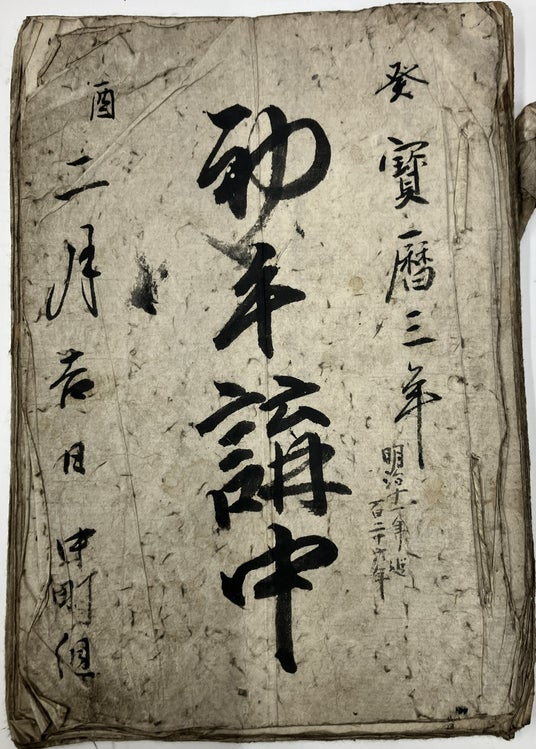 癸 寶暦三年
明治十一年迄
百二十六年
初午講中
酉 二月吉日 中町組